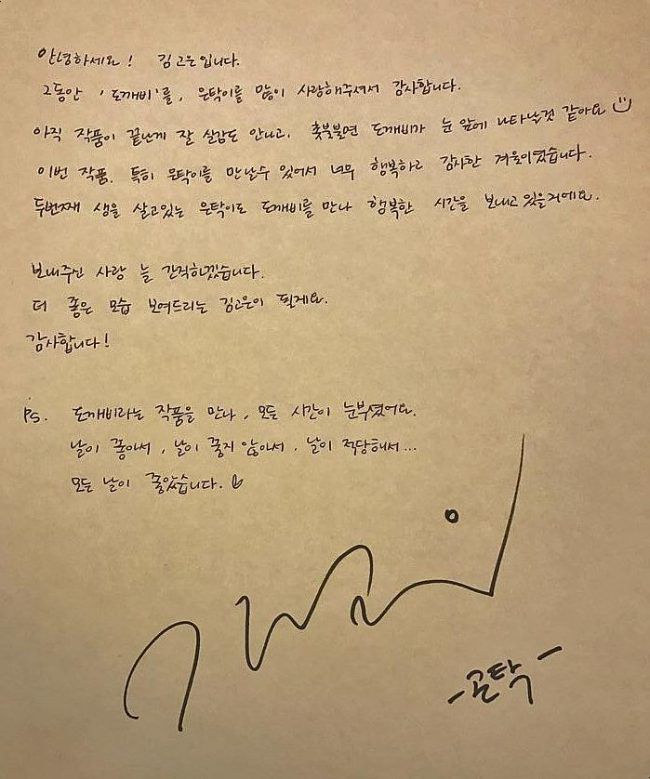 안녕하세요! 김고은입니다.
그동안 '도깨비'를, 은탁이를 많이 사랑해주셔서 감사합니다.
아직 작품이 끝난게 잘 실감도 안나고, 촛불불면 도깨비가 눈 앞에 나타날것 같아요
이번 작품, 특히 은탁이를 만날수 있어서 너무 행복하고 감사한 겨울이었습니다.
두번째 생을 살고있는 은탁이도 도깨비를 만나 행복한 시간을 보내고 있을거에요.
보내주신 사랑 늘 간직하겠습니다.
더 좋은 모습 보여드리는 김고은이 될게요.
감사합니다!
PS. 도깨비라는 작품을 만나, 모든 시간이 눈부셨어요.
날이 좋아서, 날이 좋지 않아서, 날이 적당해서...
모든 날이 좋았습니다.
-곤탁-